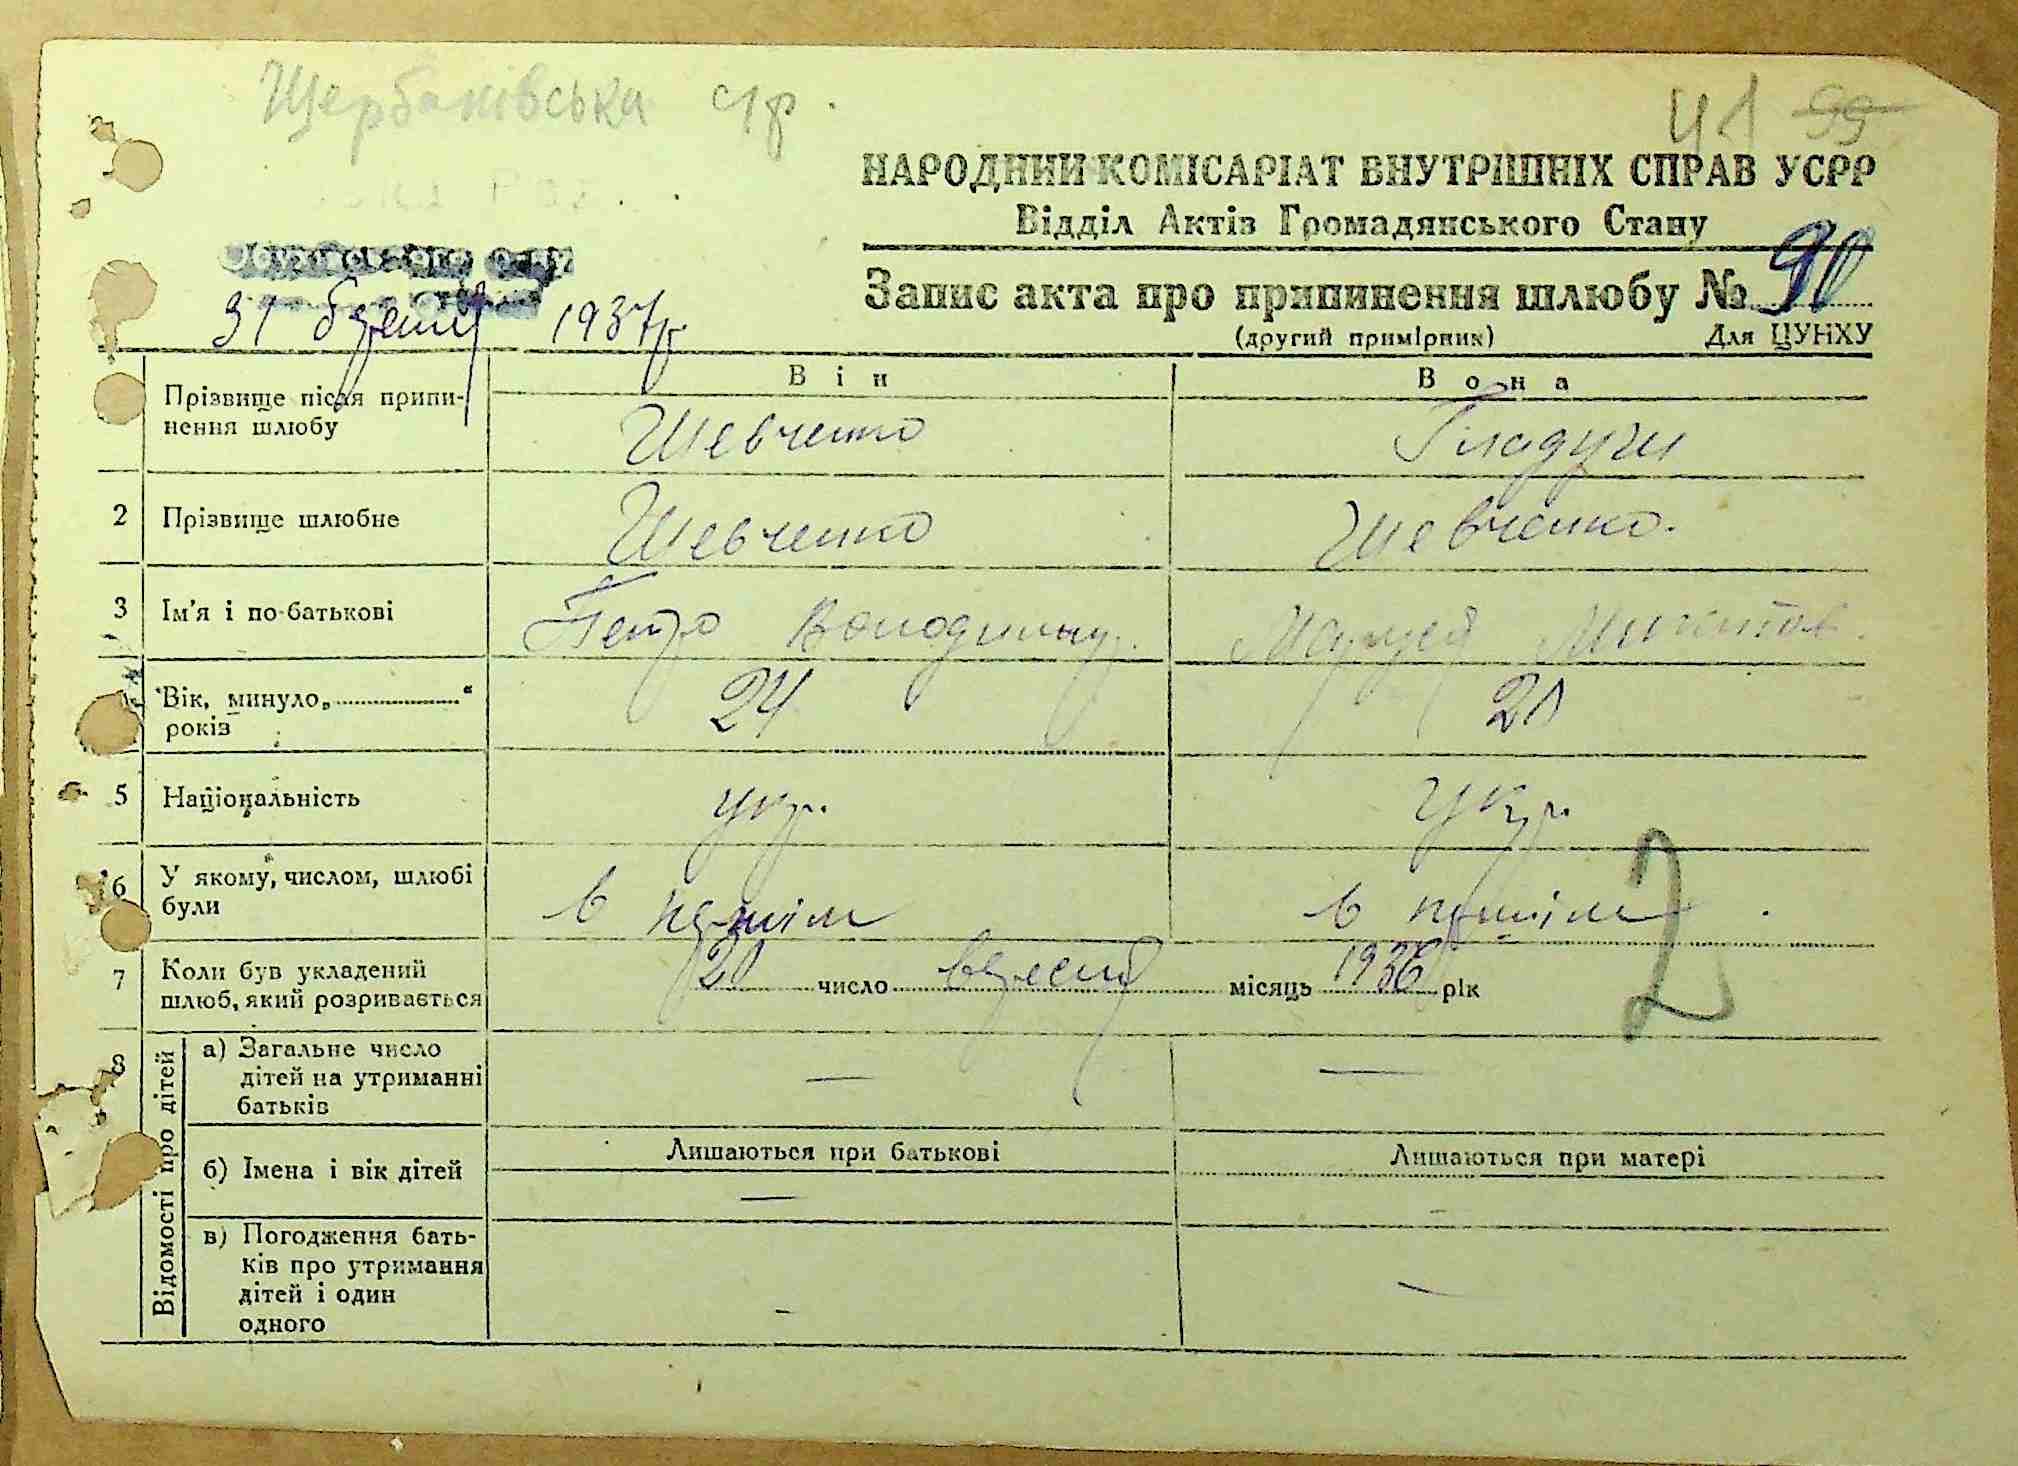 Щербаківська с/р.
41 99
НАРОДНИЙ КОМІСАРІАТ ВНУТРІШНІХ СПРАВ УСРР
Відділ Актів Громадянського Стану
Запис акта про припинення шлюбу № 90
(другий примірник) Для ЦУНХУ
31 1937р
Він Вона
Прізвище після припи-
нення шлюбу Шевченко
2 Прізвище шлюбне Шевченко Шевченко.
3 Ім'я і по-батькові Петро Володимир. Маруся
Вік, минуло „ “
років 24 20
5 Національність укр. укр.
6 У якому, числом, шлюбі
були в першім в першім
7 Коли був укладений
шлюб, який розривається 20 число вересня місяць 1936 рік
2
8 Відомості про дітей
а) Загальне число
дітей на утриманні
батьків — —
б) Імена і вік дітей Лишаються при батькові Лишаються при матері
— -
в) Погодження бать-
ків про утримання
дітей і один
одного - -